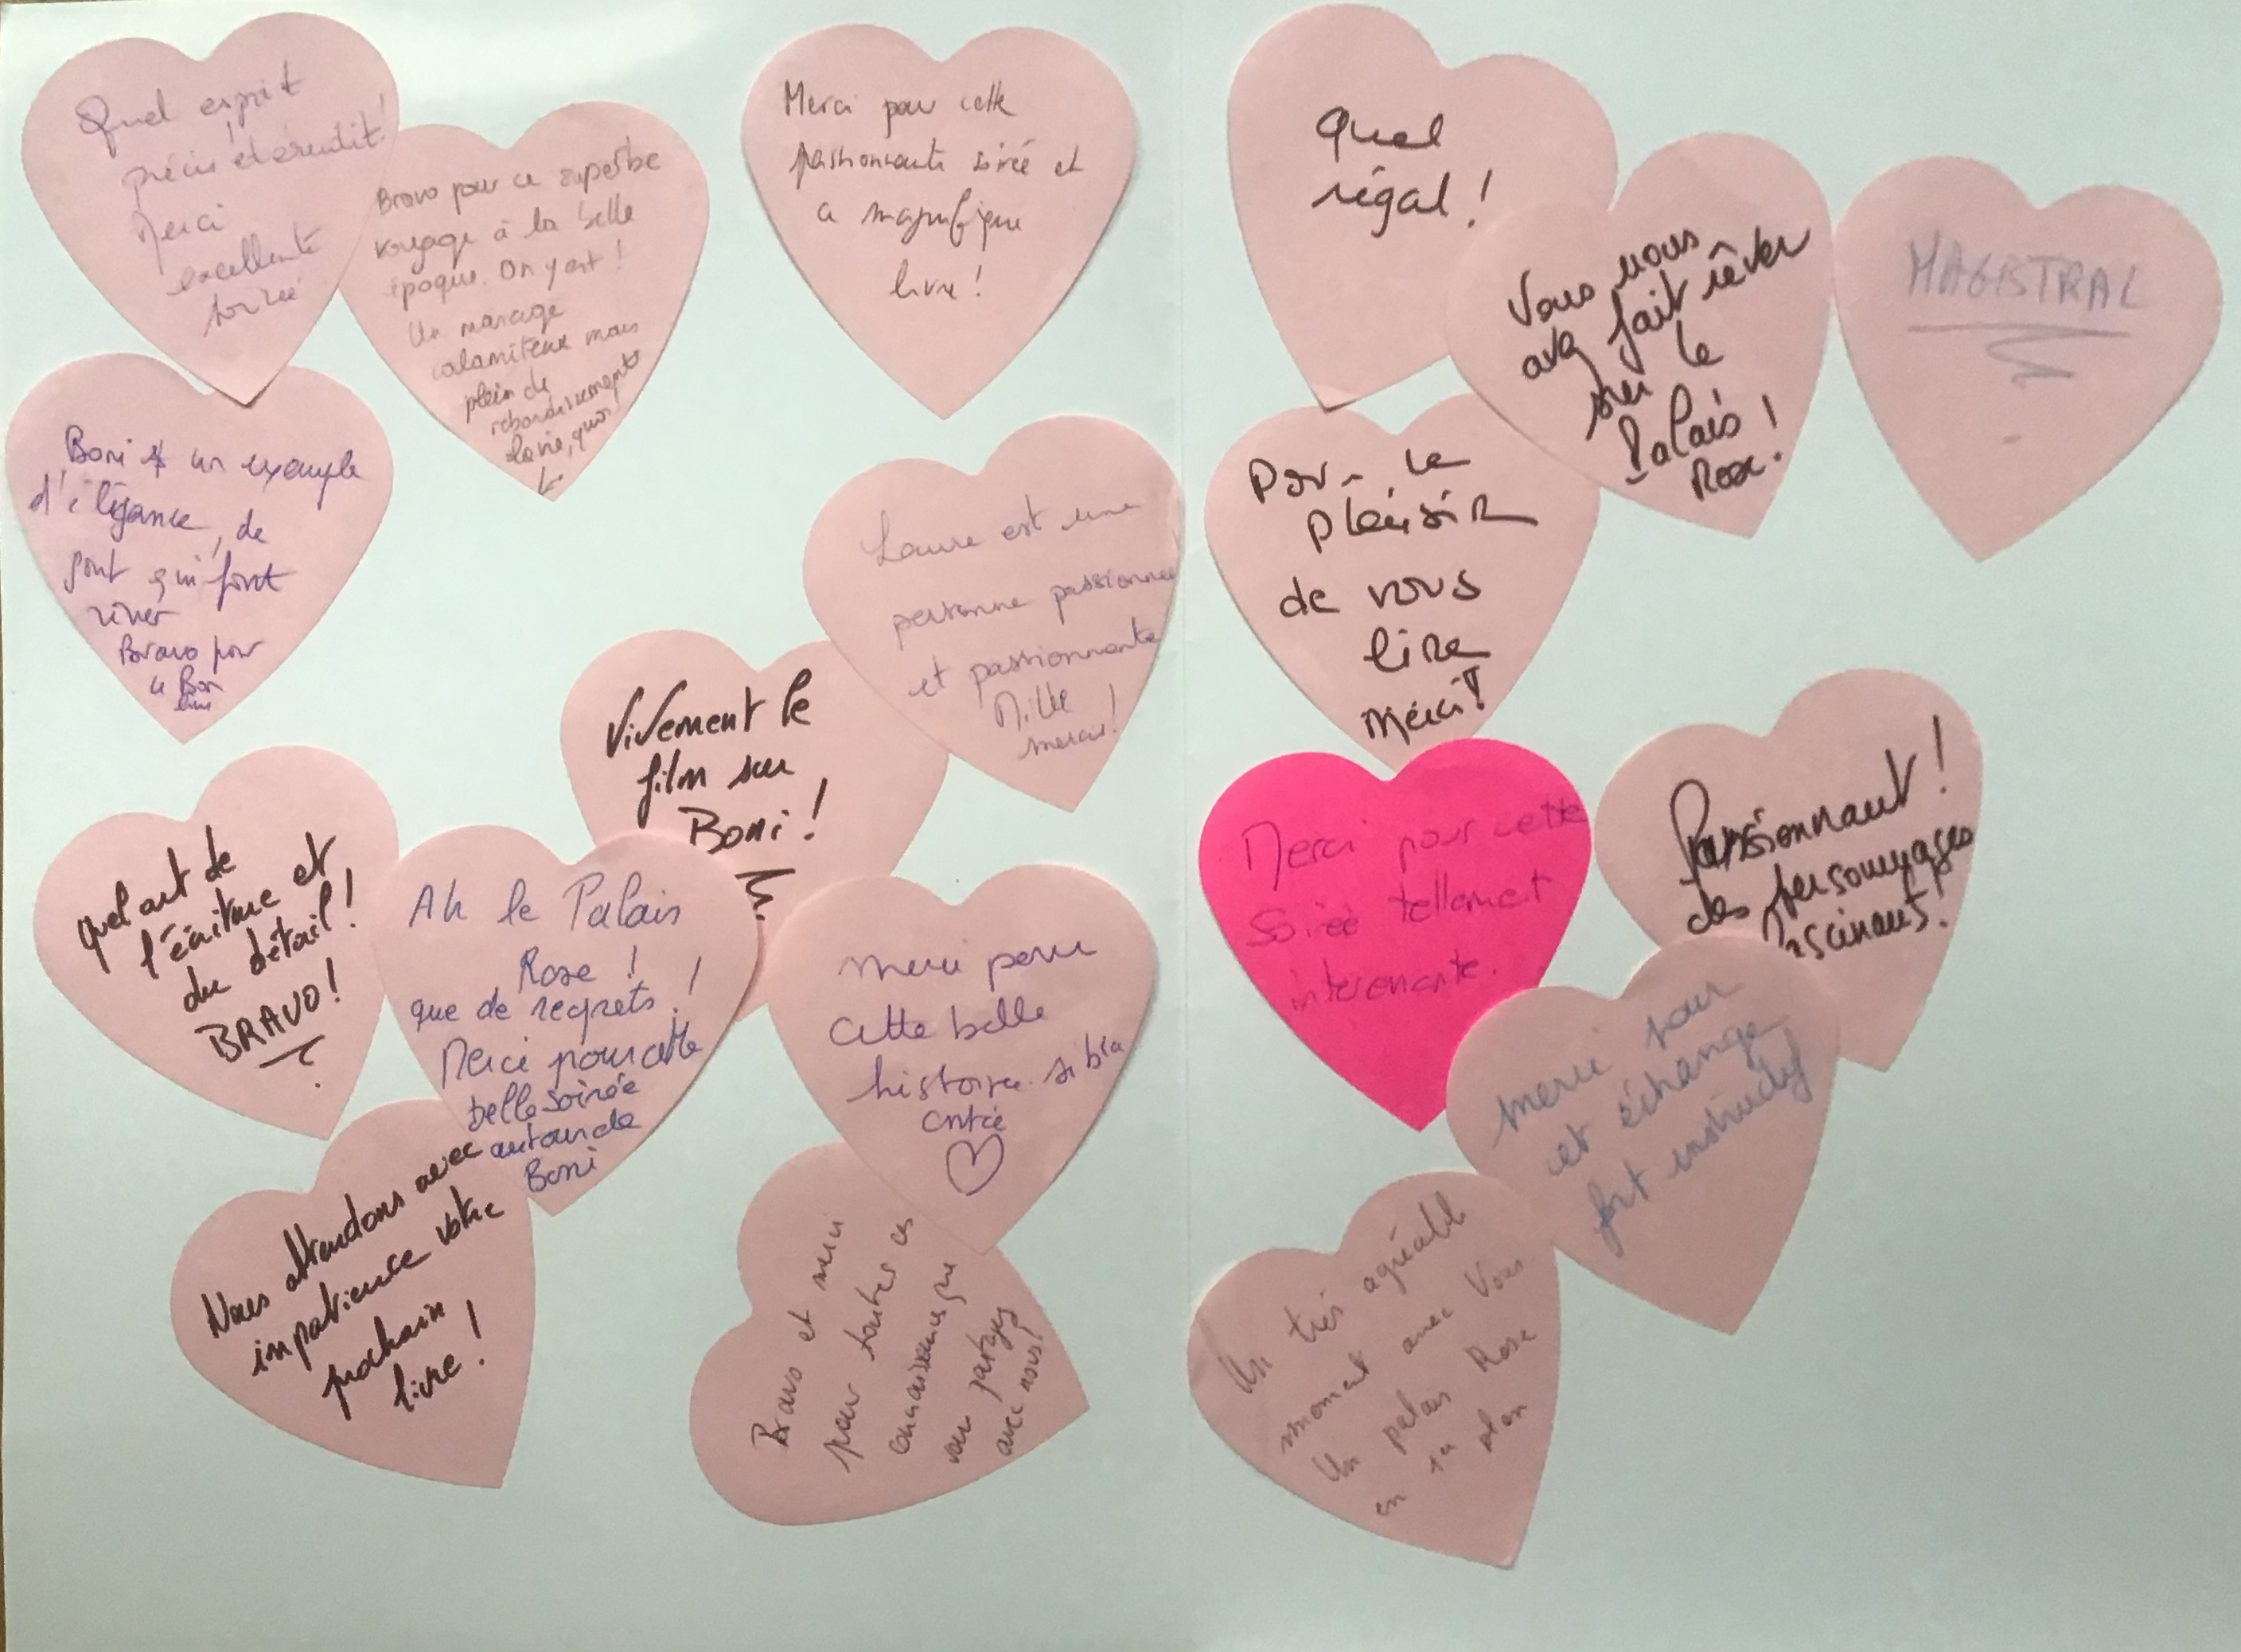 Quel esprit
précis et érudit !
Merci
excellente
soirée
Bravo pour ce superbe
voyage à la belle
époque. On y est !
Un mariage
calamiteux mais
plein de
rebondissements
la vie, quoi !
Merci pour cette
passionnante soirée et
ce magnifique
livre !
Quel
régal !
Vous nous
avez fait rêver
sur le
Palais !
Rose.
MAGISTRAL
Boni un exemple
d'élégance, de
qui font
rêver
Bravo pour
ce Bon
livre
Laure est une
personne passionnée
et passionnante
Mille
mercis !
Pour le
plaisir
de vous
lire
Merci !
Vivement le
film sur
Boni !
Quel art de
l'écriture et
du détail !
BRAVO !
Ah le Palais
Rose !
que de regrets !
Merci pour cette
belle soirée
autour de
Boni
Merci pour
cette belle
histoire si bien
contée
Merci pour cette
Soirée tellement
interessante.
Passionnant !
des personnages
fascinants !
Merci pour
cet échange
fort instructif
Nous attendons avec
impatience votre
prochain
livre !
Bravo et merci
pour toutes ces
connaissances que
vous partagez
avec nous !
Un très agréable
moment avec Vous
Un palais Rose
en